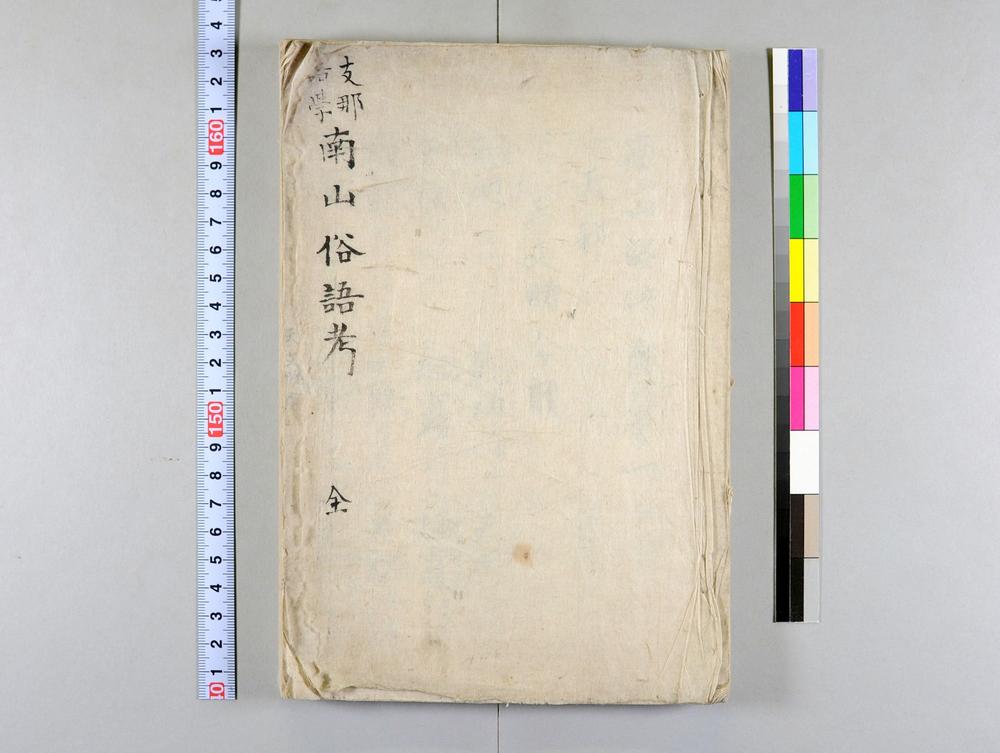 支那
語學
南山俗語考
全
4
3
2
1
160
9
8
7
6
5
4
3
2
1
150
9
8
7
6
5
4
3
2
1